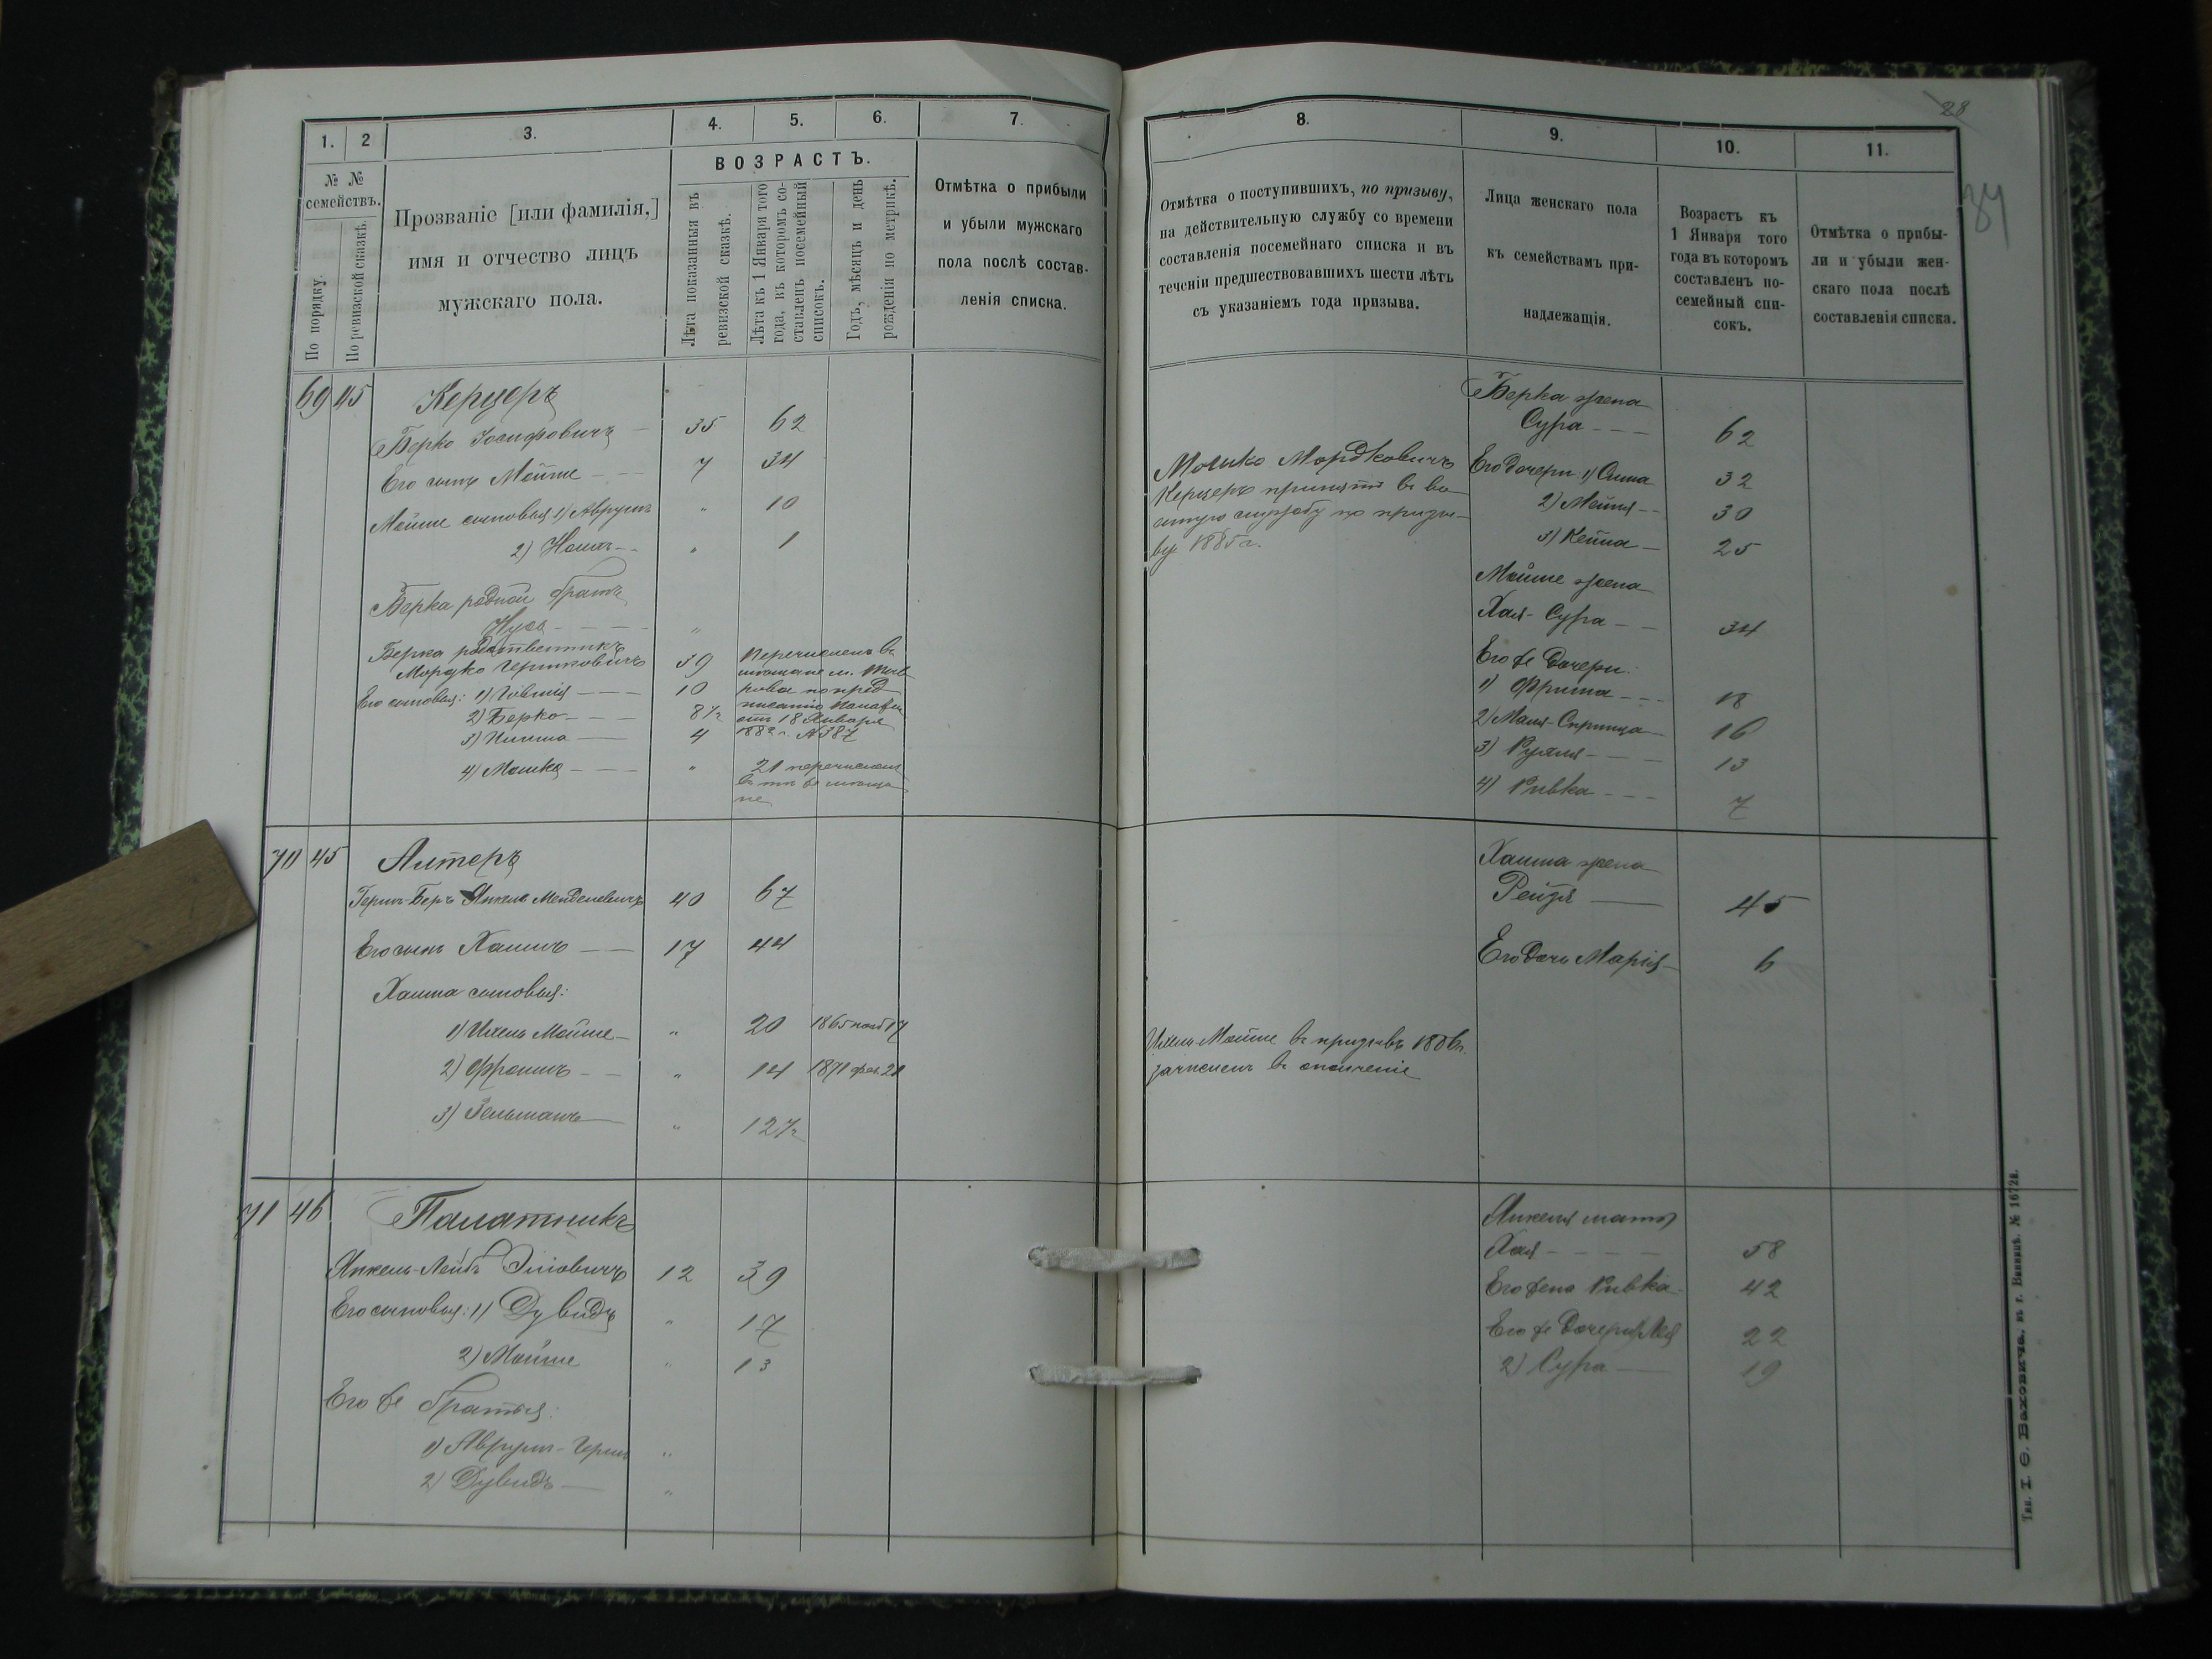 1.
2
3.
4.
5.
6.
7.
№ №
семействъ.
По порядку.
По ревизской сказкѣ.
Прозваніе [или фамилія,]
имя и отчество лицъ
мужскаго пола.
ВОЗРАСТЪ.
Лѣта показанныя въ
ревизской сказкѣ.
Лѣта къ 1 Января того
года, въ которомъ со-
ставленъ посемейный
списокъ.
Годъ, мѣсяцъ и день
рожденія по метрикѣ.
Отмѣтка о прибыли
и убыли мужскаго
пола послѣ состав-
ленія списка.
69 45 Керцеръ
Берко Іосифовичъ — 35 62
Его сынъ Мойше — — 7 34
Мойше сыновья 1) Аврумъ „ 10
2) — — „ 1
Берка родной братъ
— — — — „
Берка родственникъ
Мордко Гершковичъ 39 Перечисленъ въ
мѣщане м.
Его сыновья: 1) — — — 10
2) Берко — — — 8½
18 Января
3) — — — 4 1882 г. № 387
4) Мошко — — — „ 21 перечисленъ
въ мѣща
не
70 45 Алтеръ
Герш-Беръ Янкель Менделевичъ 40 67
Его сынъ Хаимъ — — 17 44
Хаима сыновья:
1) Мойше — „ 20 1865 нояб 17
2) Фроимъ — — „ 14 1871 фев. 21
3) Зельманъ — „ 1 2½
71 46 Палатникъ
Янкель-Лейбъ Эліовичъ 12 39
Его сыновья: 1) Дувидъ „ 17
2) Мойше „ 13
Его же братья:
1) Аврум-Герш „
2) Дувидъ — „
28
34
8.
9.
10.
11.
Отмѣтка о поступившихъ, по призыву,
на дѣйствительную службу со времени
составленія посемейнаго списка и въ
теченіи предшествовавшихъ шести лѣтъ
съ указаніемъ года призыва.
Лица женскаго пола
къ семействамъ при-
надлежащія.
Возрастъ къ
1 Января того
года въ которомъ
составленъ по-
семейный спи-
сокъ.
Отмѣтка о прибы-
ли и убыли жен-
скаго пола послѣ
составленія списка.
Берка жена
Сура — — — 62
Мошко Мордковичъ
Керцеръ принятъ въ во
енную службу по призы-
ву 1885 г.
Его дочери: 1) 32
2) — — 30
3) — 25
Мойше жена
Хая-Сура — — 34
Его же дочери:
1) Фрима — — — 18
2) Маля-Сприца — 16
3) Рухля — — — 13
4) Ривка — — — 7
Хаима жена
Рейзя — 45
Его дочь Марія — 6
Мойше въ призывъ 1886 г.
зачисленъ въ ополченіе
Янкеля мать
Хая — — — — 58
Его жена Ривка — 42
Его же дочери: 1) Лея 22
2) Сура — 19
Тип. І. Ѳ. Ваховича, въ г. Винницѣ. № 1672й.